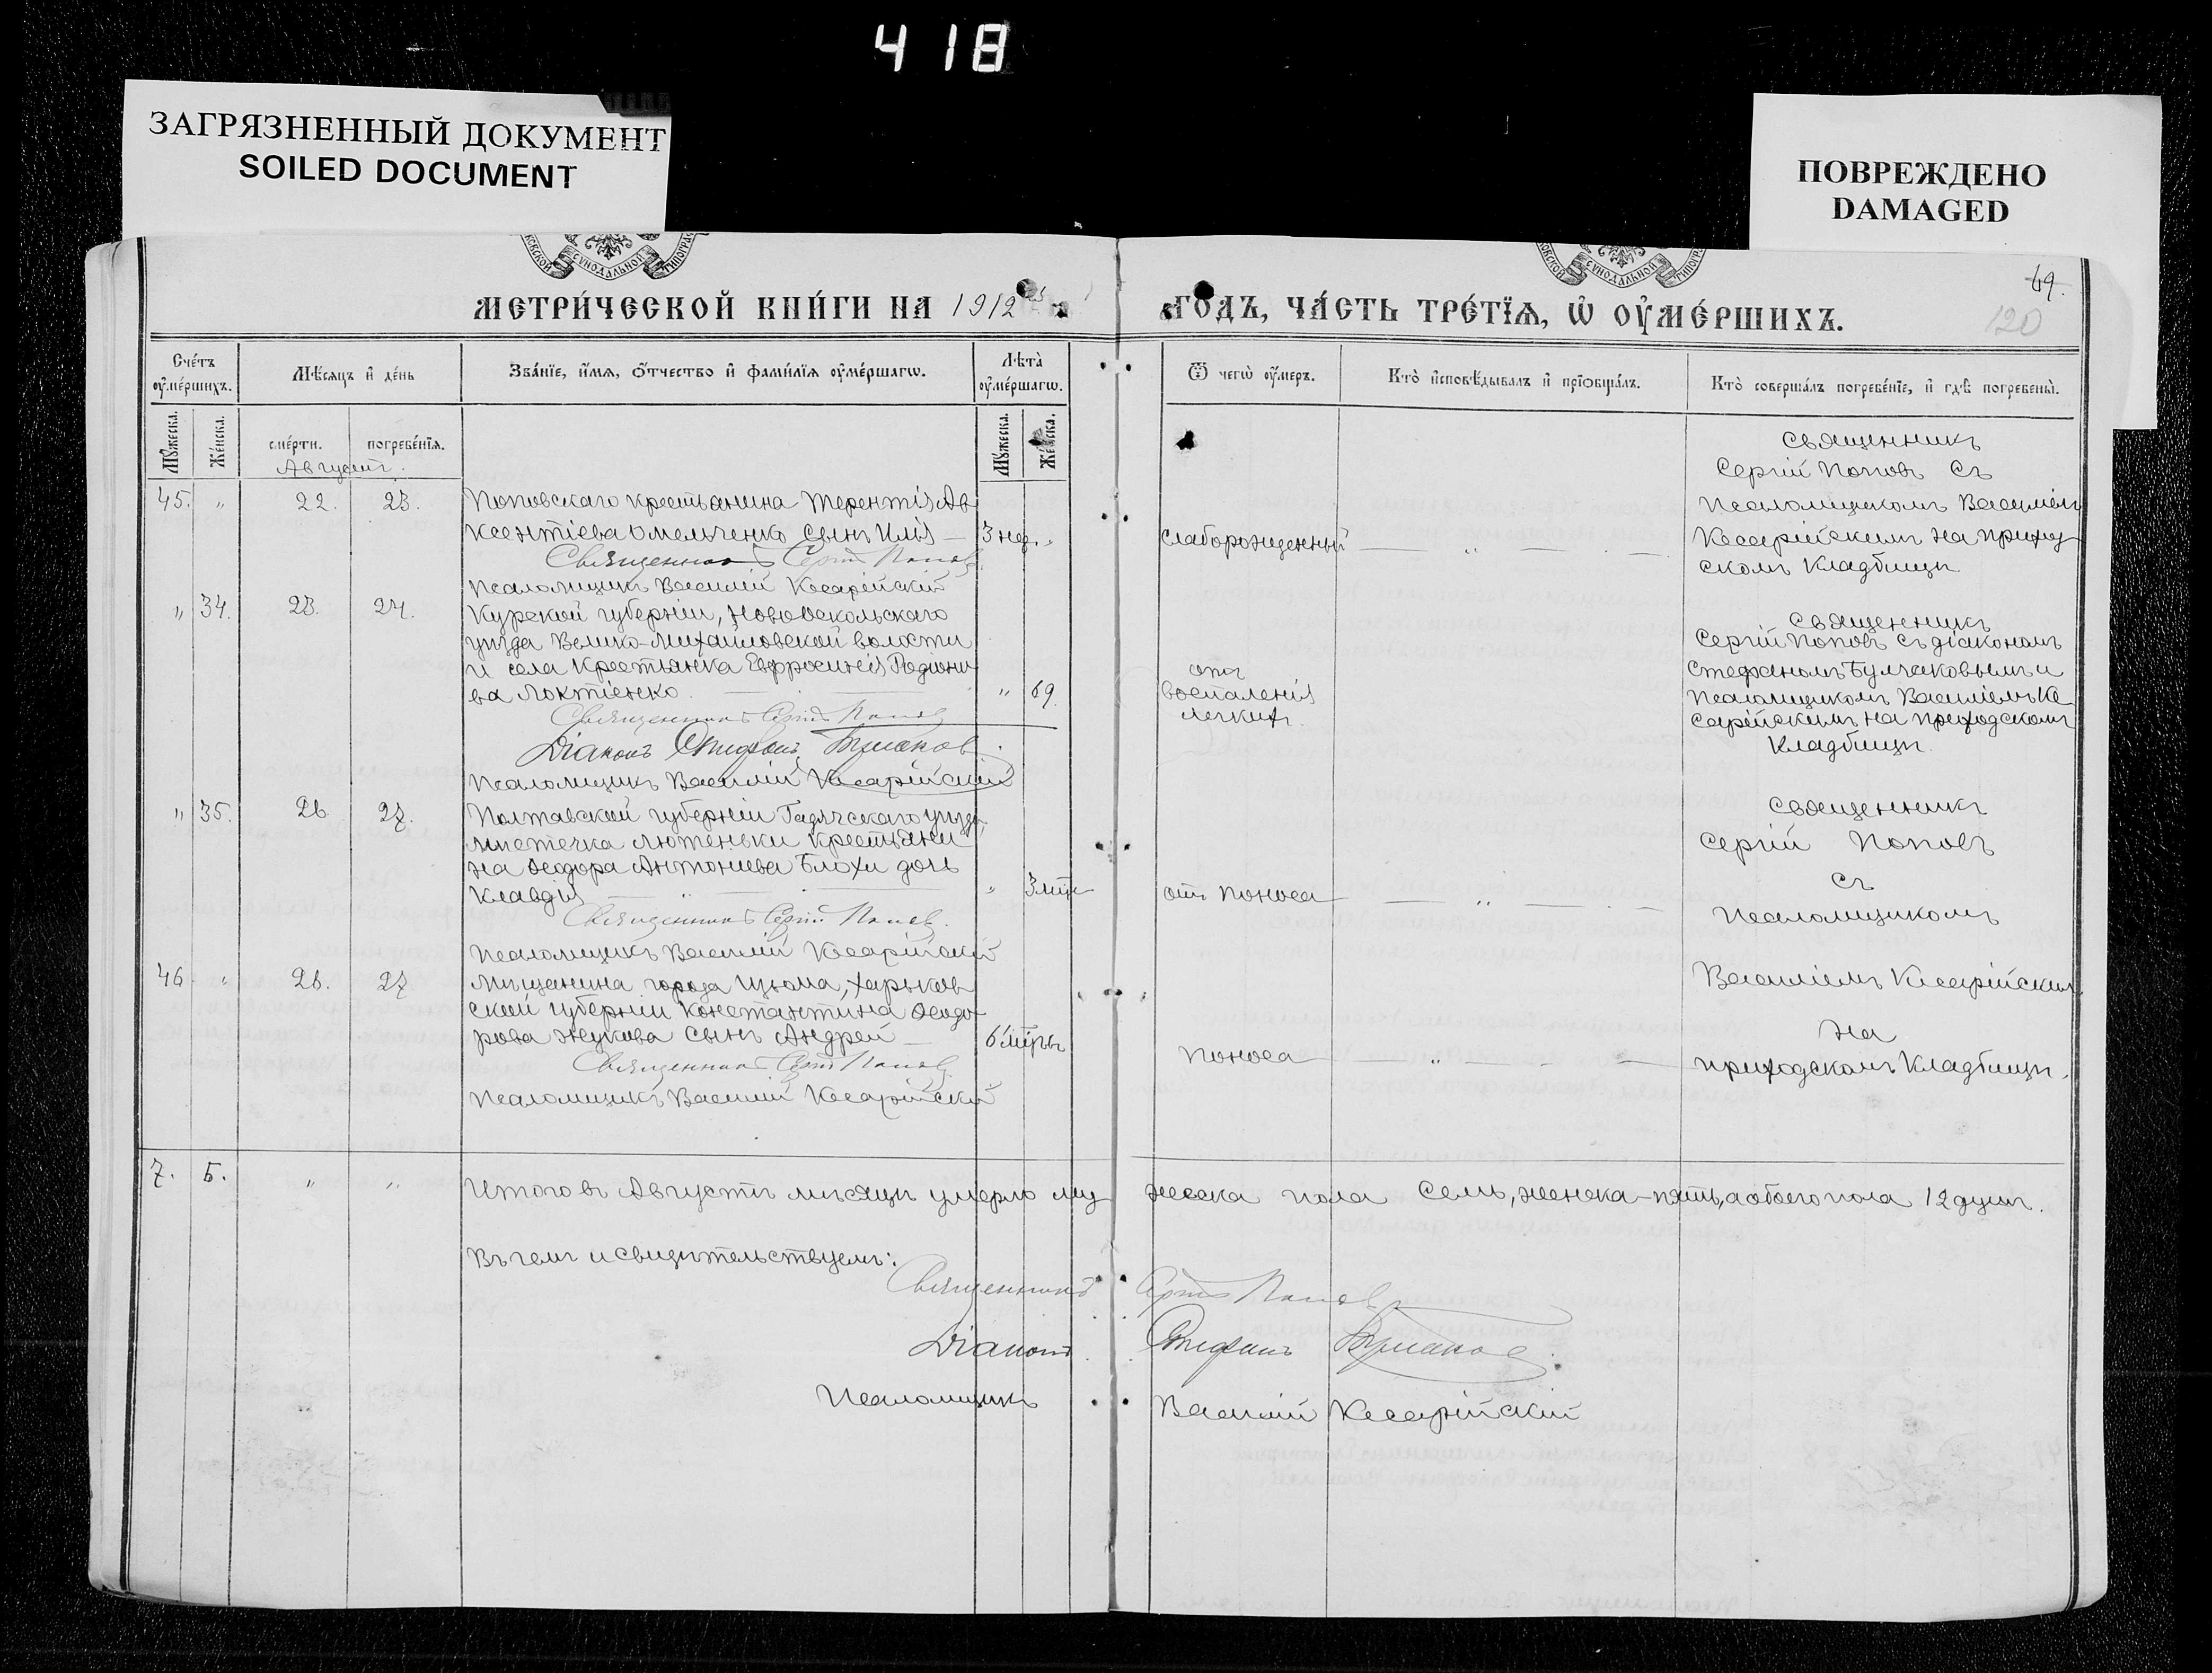 418
ЗАГРЯЗНЕННЫЙ ДОКУМЕНТ
SOILED DOCUMENT
ПОВРЕЖДЕНО
DAMAGED
МЕТРИ́ЧЕСКОЙ КНИ́ГИ НА 1912
ГОДЪ, ЧА́СТЬ ТРЕ́ТЇѦ, Ѡ҆ ОУ҆МЕ́РШИХЪ.
69.
120
Сче́тъ оу҆ме́ршихъ.
Мѣ́сѧцъ и҆ де́нь
Зва́нїе, и҆́мѧ, ѻ҆́тчество и҆ фами́лїѧ оу҆ме́ршагѡ.
Лѣ́та оу҆ме́ршагѡ.
Ѿ чегѡ̀ оу҆́меръ.
Кто̀ и҆сповѣ́дывалъ и҆ прїѡбща́лъ.
Кто̀ соверша́лъ погребе́нїе, и҆ гдѣ̀ погребены̀.
Мꙋ́жеска.
Же́нска.
сме́рти.
погребе́нїѧ.
Мꙋ́жеска.
Же́нска.
Августъ.
45. " 22. 23.
Поповскаго крестьянина Терентія Ав
ксентіева Омельченко сынъ Илія — 3 нед. "
Священникъ Сергій Поповъ
Псаломщикъ Василій Кесарійскій
слаборожденный — " — . —
Священникъ
Сергій Поповъ съ
Псаломщикомъ Василіемъ
Кесарійскимъ на приход
скомъ кладбищѣ
" 34. 23. 24.
Курской губерніи, Новооскольскаго
уѣзда Велико-Михайловской волости
и села крестьянка Евфросинія Родіоно
ва Локтіенко. — . — " 69.
Священникъ Сергій Поповъ
Діаконъ Стефанъ Булгаков
Псаломщикъ Василій Кесарійскій
отъ
воспаленія
легкихъ.
Священникъ
Сергій Поповъ съ діакономъ
Стефаномъ Булгаковымъ и
Псаломщикомъ Василіемъ Ке
сарійскимъ на приходскомъ
кладбищѣ.
" 35. 26. 27.
Полтавской губерніи Гадячскаго уѣзда,
мѣстечка Лютеньки крестьяни
на Ѳеодора Антоніева Блохи дочь
Клавдія — " — . — " 3 мѣс
Священникъ Сергій Поповъ.
Псаломщикъ Василій Кесарійскій
отъ поноса — " — . —
Священникъ
Сергій Поповъ
съ
Псаломщикомъ
46. " 26. 27
Мѣщанина города Изюма, Харьков
ской губерніи Константина Ѳеодо
рова Жукова сынъ Андрей —
Священникъ Сергій Поповъ
Псаломщикъ Василій Кесарійскій
поноса — " — - —
Василіемъ Кесарійскимъ
на
приходскомъ кладбищѣ.
7. 5. " "
Итого въ Августѣ мѣсяцѣ умерло му
жеска пола семь, женска-пять, а обоего пола 12 душъ.
Въ чемъ и свидѣтельствуемъ:
Священникъ Сергій Поповъ
Діаконъ Стефанъ Булгаков.
Псаломщикъ Василій Кесарійскій